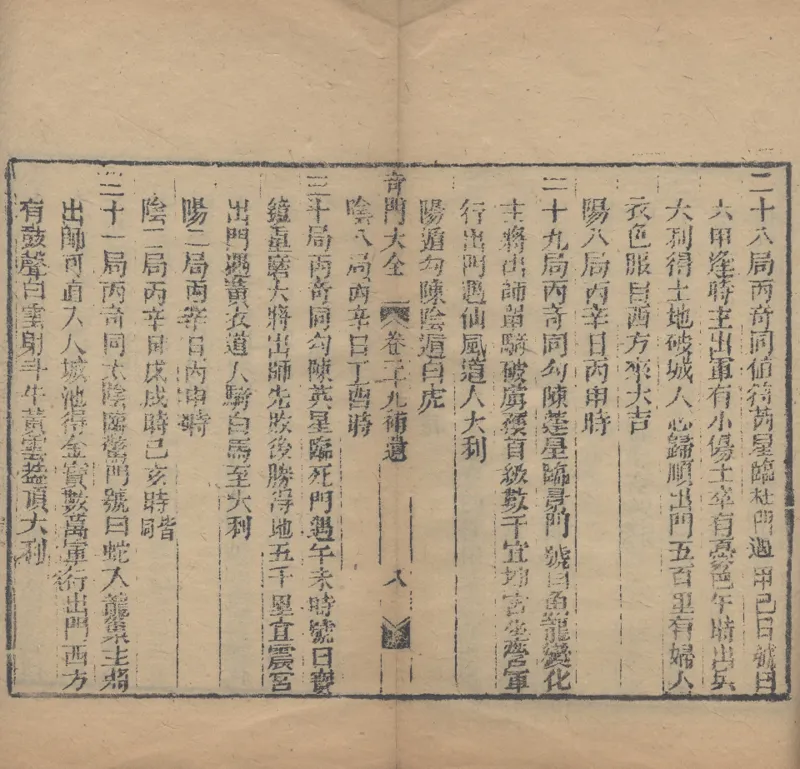 二十八局丙奇同值符芮星臨杜門遇甲己日號曰
六甲逢時主出軍有小傷士卒有憂色午時出兵
大利得土地破城人心歸順出門五百里有婦人
衣色服自西方來大吉
陽八局丙辛日丙申時
二十九局丙奇同勾陳蓬星臨景門號曰魚龍變化
主將出師苗驕破虜獲首級數千宜坤宮坐營軍
行出門遇仙風道人大利
陽遁勾陳陰遁白虎
陰八局丙辛日丁酉時
奇門大全 卷二十九補遺 八
三十局丙奇同勾陳英星臨死門遇午未時號曰寶
鏡重磨大將出師先敗後勝得地五千里宜震宮
出門遇黃衣道人騎白馬至大利
陽二局丙辛日丙申時
陰二局丙辛日戊戌時己亥時皆同
三十一局丙奇同太陰臨驚門號曰蛇入龍巢主將
出師可直入人城池得金寶數萬軍行出門西方
有鼓聲白雲射斗牛黃雲蓋頂大利